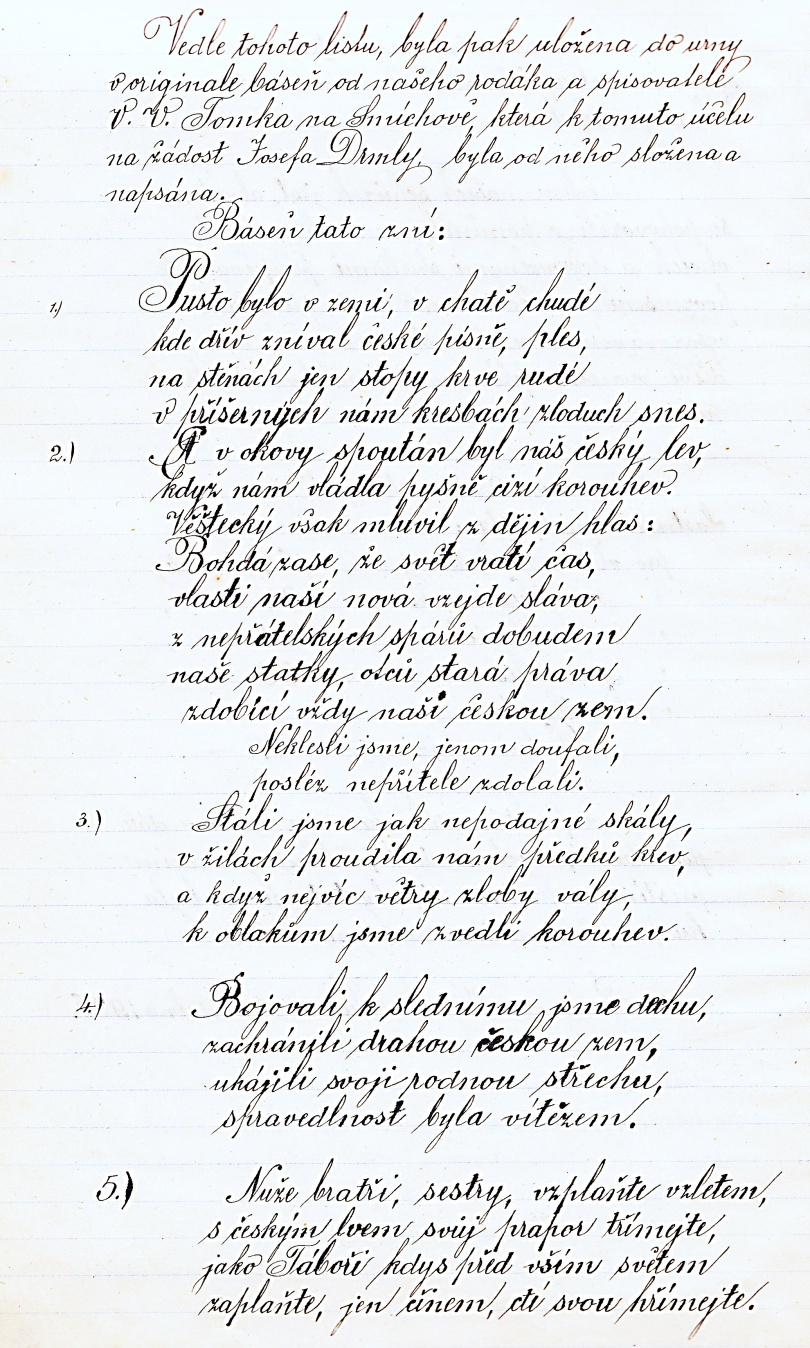 Vedle tohoto listu, byla pak uložena do urny
v originale báseň od našeho rodáka a spisovatele
V. V. Tomka na Smíchově, která k tomuto účelu
na žádost Josefa Drmly, byla od něho složena a
napsána.
Báseň tato zní:
1) Pusto bylo v zemi, v chatě chudé
kde dřív zníval české písně, ples,
na stěnách jen stopy krve rudé
v příšerných nám kresbách zloduch snes.
2.) A v okovy spoután byl náš český lev,
když nám vládla pyšně cizí korouhev.
Věštecký však mluvil z dějin hlas:
Bohdá zase, že svět vratí čas,
vlasti naší nová vzejde sláva,
z nepřátelských spárů dobudem
naše statky, otců stará práva
zdobící vždy naši českou zem.
Neklesli jsme, jenom doufali,
posléz nepřítele zdolali.
3.) Stáli jsme jak nepodajné skály,
v žilách proudila nám předků krev,
a když nejvíc větry zloby vály,
k oblakům jsme zvedli korouhev.
4.) Bojovali k slednímu jsme dechu,
zachránili drahou českou zem,
uhájili svoji rodnou střechu,
spravedlnost byla vítězem.
5.) Nuže bratři, sestry, vzplaňte vzletem,
s českým lvem svůj prapor třímejte,
jako Táboři kdys před vším světem
zaplaňte, jen činem, ctí svou hřímejte.